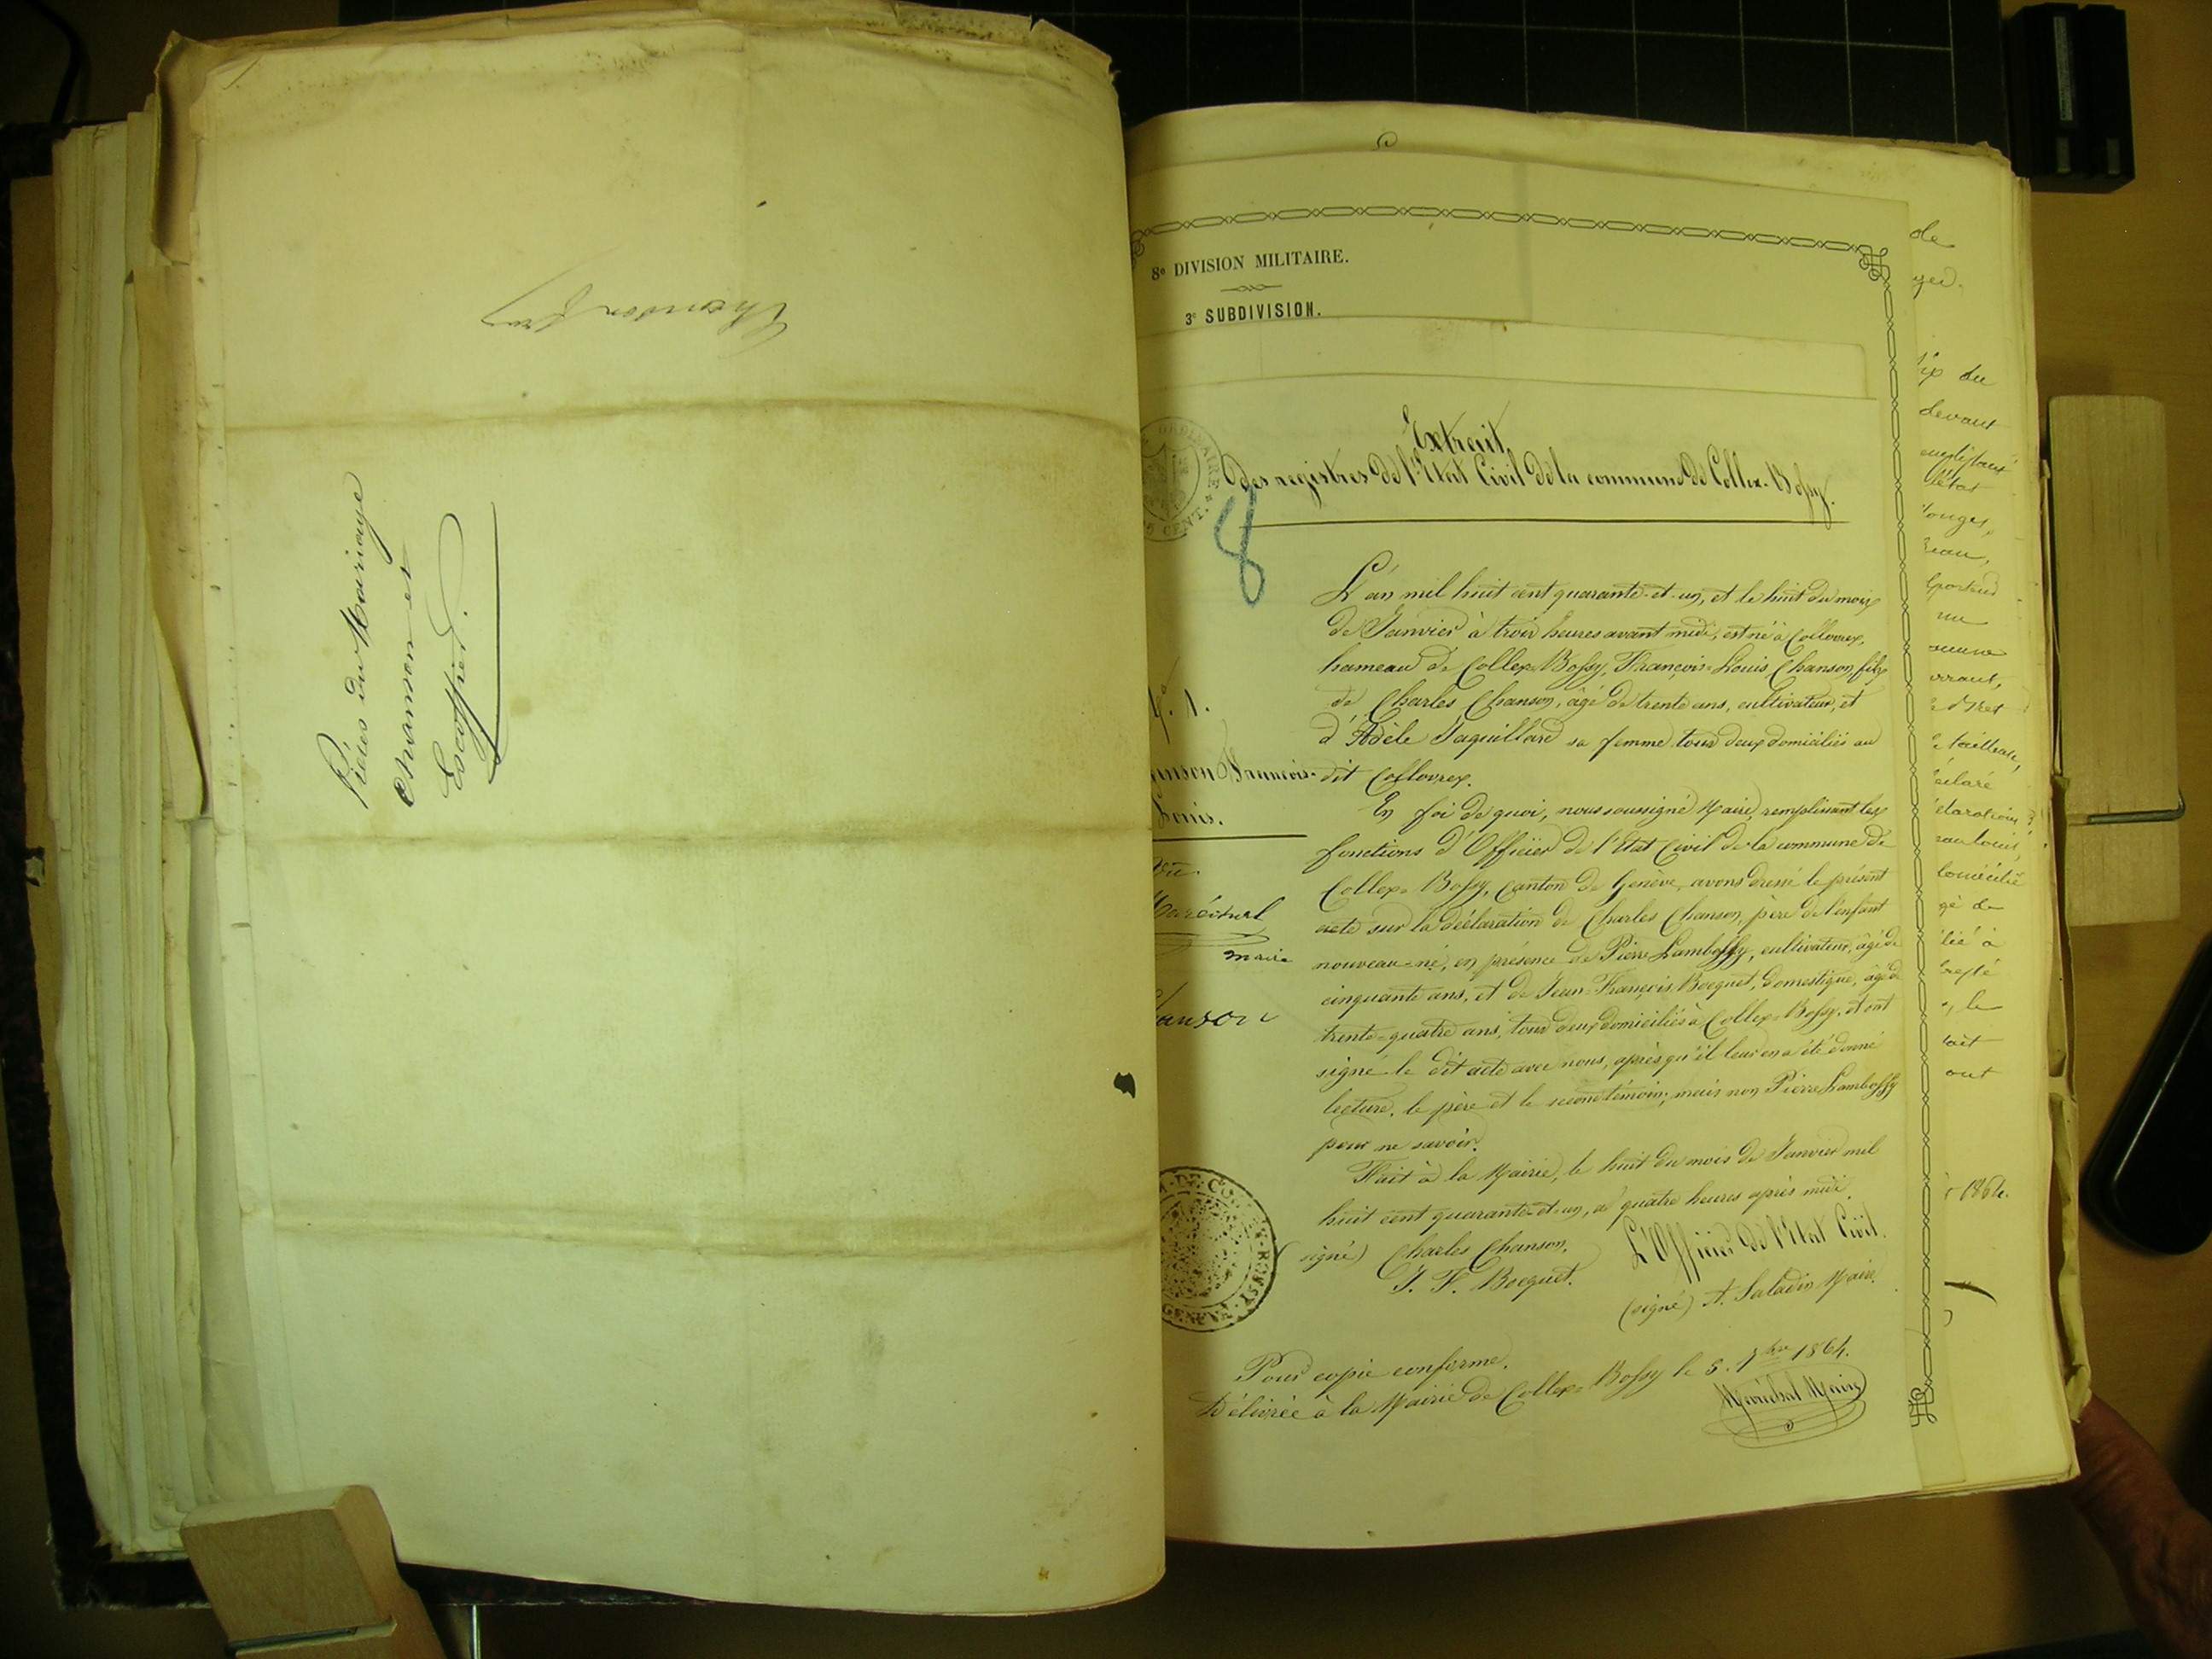 Pièces du Mariage
Chanson et
Escoffier.
8e DIVISION MILITAIRE.
3e SUBDIVISION.
Extrait
des registres de l'Etat Civil de la commune de Collex-Bossy.
8
L'an mil huit cent quarante-et-un, et le huit du mois
de Janvier à trois heures avant midi, est né à Collovrex,
hameau de Collex-Bossy, François-Louis Chanson, fils
de Charles Chanson, âgé de trente ans, cultivateur, et
d'Adèle Jaquillard sa femme tous deux domiciliés au
dit Collovrex.
No. 1.
François-
Louis.
En foi de quoi, nous soussigné Maire, remplissant les
fonctions d'Officier de l'Etat Civil de la commune de
Collex-Bossy, Canton de Genève, avons dressé le présent
acte sur la déclaration de Charles Chanson, père de l'enfant
nouveau-né, en présence de Pierre Lambossy, cultivateur, âgé de
cinquante ans, et de Jean-François Bocquet, domestique, âgé de
trente-quatre ans, tous deux domiciliés à Collex-Bossy, et ont
signé le dit acte avec nous, après qu'il leur en a été donné
lecture, le père et le second témoin; mais non Pierre Lambossy
pour ne savoir.
Vu.
Maréchal
maire
Fait à la Mairie, le huit du mois de Janvier mil
huit cent quarante-et-un, à quatre heures après midi.
(signé) Charles Chanson.
J. F. Bocquet.
L'Officier de l'Etat Civil.
(signé) A. Saladin Maire.
Pour copie conforme.
Délivrée à la Mairie de Collex-Bossy le 5. 7bre 1864.
Maréchal Maire
de
du
devant
état
une
déclaré
domicilié
de
à
le
ont
1864.